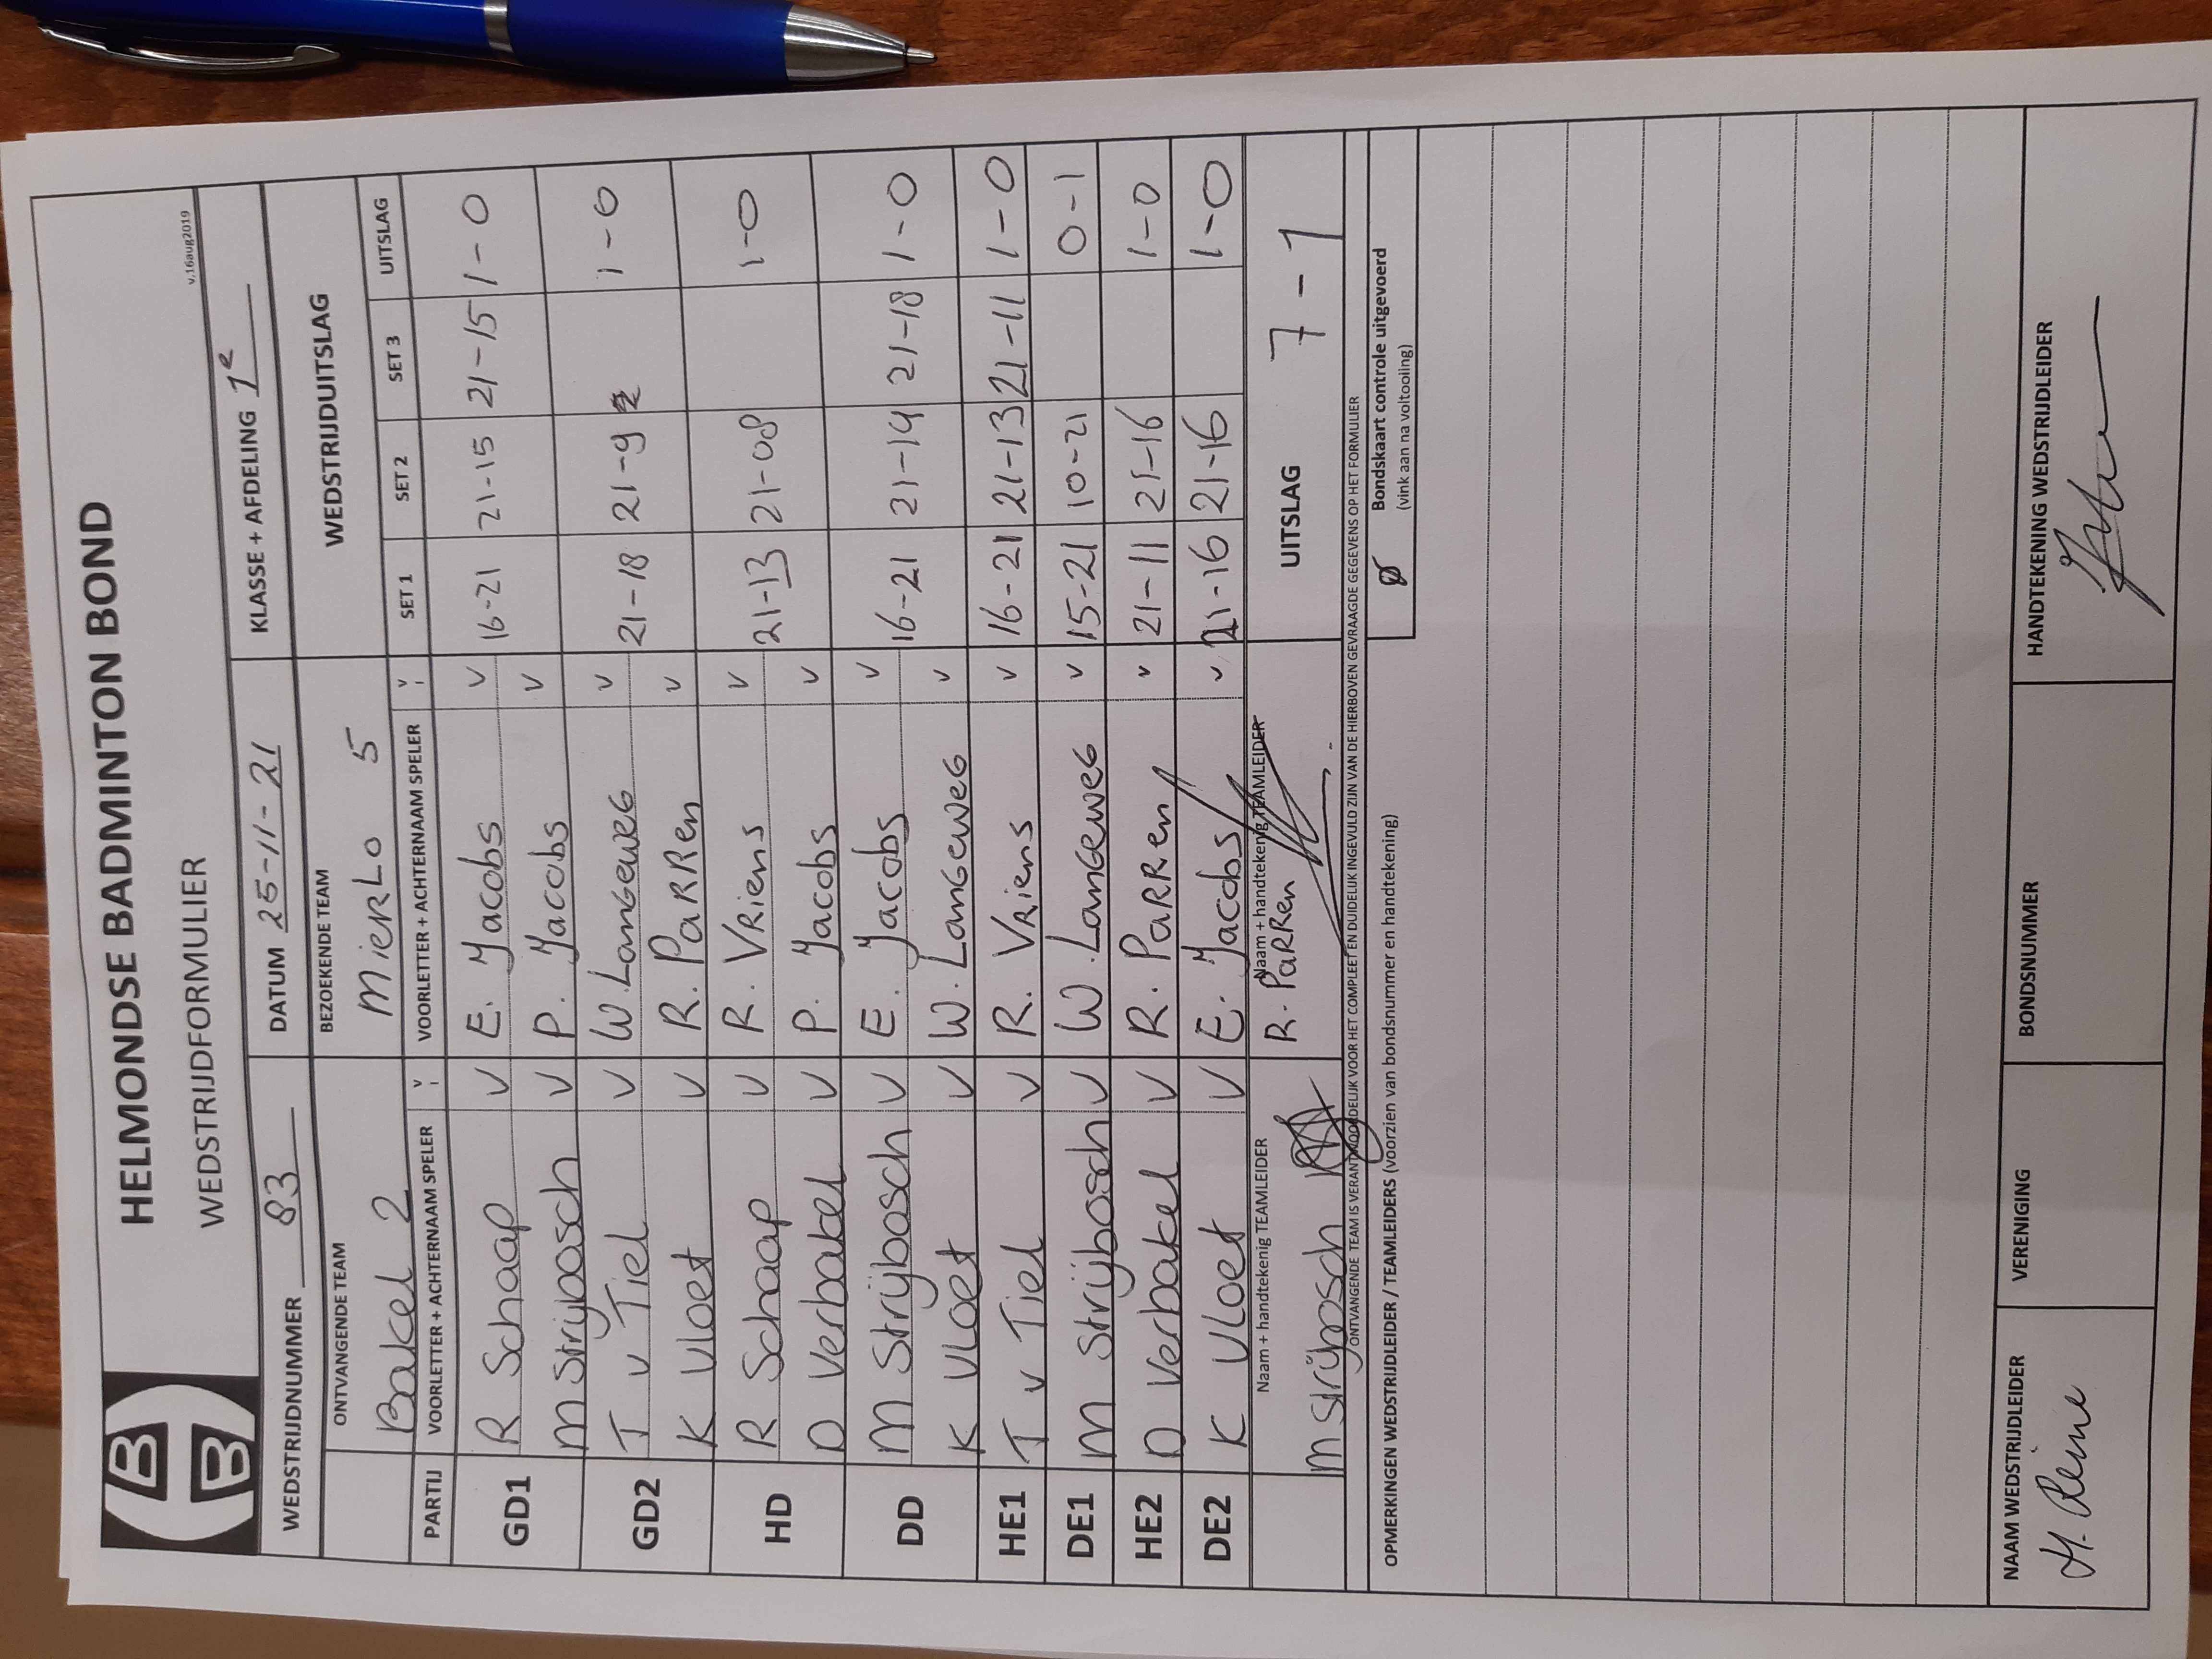 HELMONDSE BADMINTON BOND
WEDSTRIJDFORMULIER
v.16aug2019
WEDSTRIJDNUMMER 83 DATUM 25-11-21 KLASSE + AFDELING 1e
ONTVANGENDE TEAM BEZOEKENDE TEAM WEDSTRIJDUITSLAG
Bakel 2 MierLo 5
PARTIJ VOORLETTER + ACHTERNAAM SPELER V VOORLETTER + ACHTERNAAM SPELER V SET 1 SET 2 SET 3 UITSLAG
GD1 R Schaap V E. Jacobs V 16-21 21-15 21-15 1-0
M Strijbosch V P. Jacobs V
GD2 T v Tiel V W. Langeweg V 21-18 21-9 1-0
K Vloet V R. Parren V
HD R Schaap V R. Vriens V 21-13 21-08 1-0
D Verbakel V P. Jacobs V
DD M Strijbosch V E. Jacobs V 16-21 21-14 21-18 1-0
K Vloet V W. Langeweg V
HE1 T v Tiel V R. Vriens V 16-21 21-13 21-11 1-0
DE1 M Strijbosch V W. Langeweg V 15-21 10-21 0-1
HE2 D Verbakel V R. Parren V 21-11 21-16 1-0
DE2 K Vloet V E. Jacobs V 21-16 21-16 1-0
Naam + handtekenig TEAMLEIDER Naam + handtekenig TEAMLEIDER UITSLAG 7-1
M Strijbosch R. Parren
ONTVANGENDE TEAM IS VERANTWOORDELIJK VOOR HET COMPLEET EN DUIDELIJK INGEVULD ZIJN VAN DE HIERBOVEN GEVRAAGDE GEGEVENS OP HET FORMULIER
OPMERKINGEN WEDSTRIJDLEIDER / TEAMLEIDERS (voorzien van bondsnummer en handtekening)
Bondskaart controle uitgevoerd
(vink aan na voltooiing)
NAAM WEDSTRIJDLEIDER VERENIGING BONDSNUMMER HANDTEKENING WEDSTRIJDLEIDER